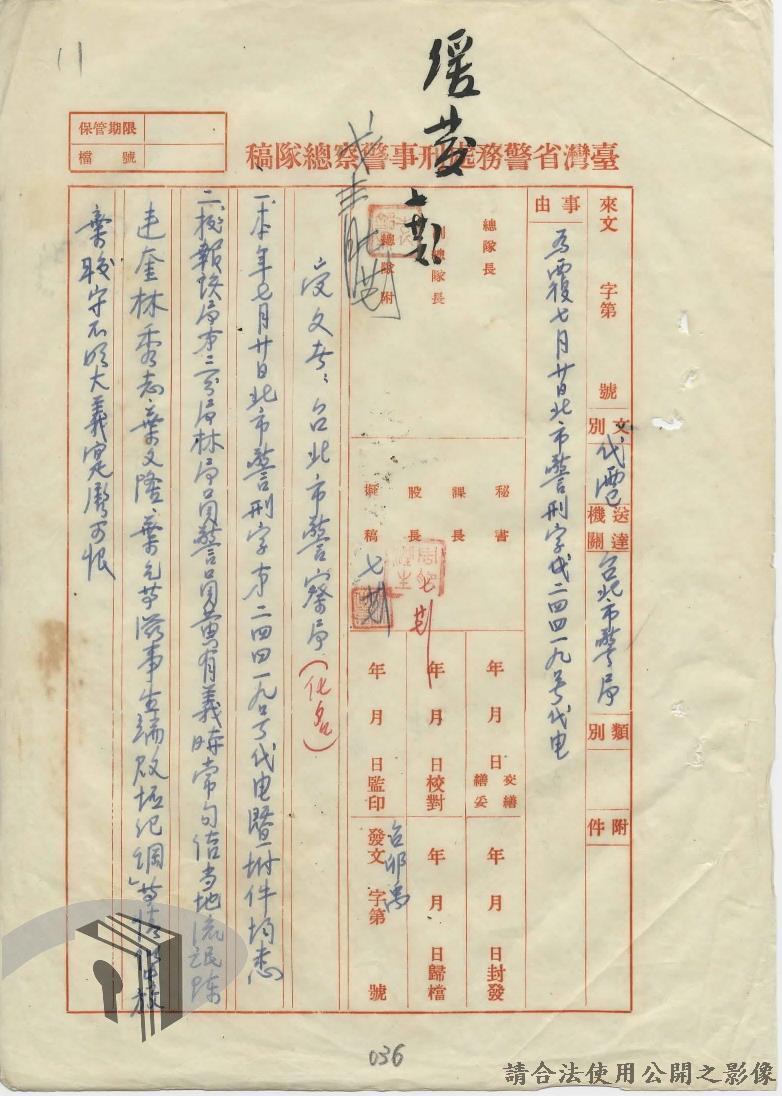 緩發
臺灣省警務處刑事警察總隊稿
保管期限
檔號
來文 字第 號
文別 代電
送達機關 台北市警局
類別
附件
事由
為覆七月廿日北市警刑字第二四四一九號代电
總隊長
副總隊長
總隊附
秘書
課長
股長
擬稿
年月日交繕
繕妥
年月日校對
年月日監印
年月日封發
年月日歸檔
發文 字第 號
受文者：台北市警察局（化名）
一、本年七月廿日北市警刑字第二四四一九號代电暨附件均悉
二、按報該局第二分局林局員警員黃有義時常勾結当地流氓陳
走奎林秀志葉文隆葉元等滋事生端敗壞紀綱」等情
棄職守不明大義寔屬可恨
036
請合法使用公開之影像